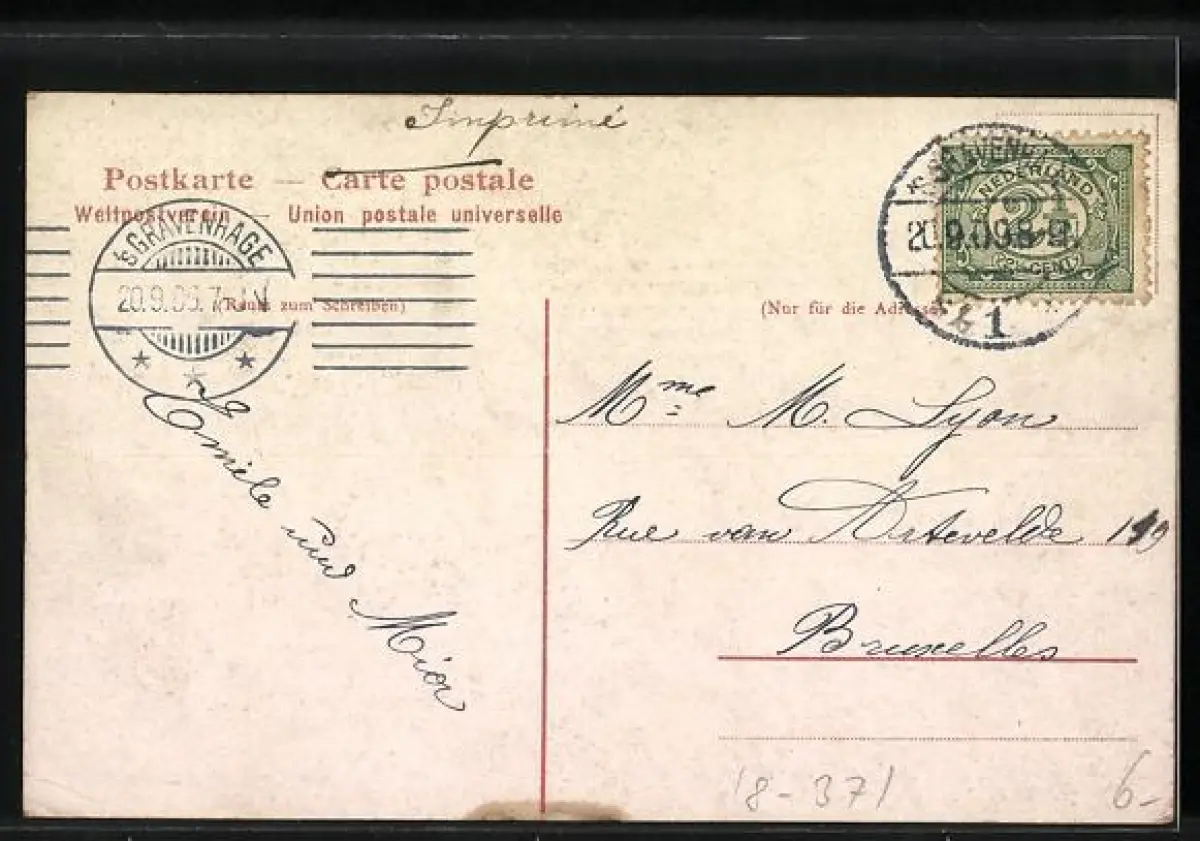 Imprimé
Postkarte — Carte postale
Weltpostverein — Union postale universelle
'sGRAVENHAGE
20.9.06.7-
(Raum zum Schreiben)
(Nur für die Adresse)
'sGRAVENHAGE
20.9.06
1
NEDERLAND
2½
(2½ CENT)
Emile und
Mme M. Lyon
Rue van Artevelde
Bruxelles
8-371
6-